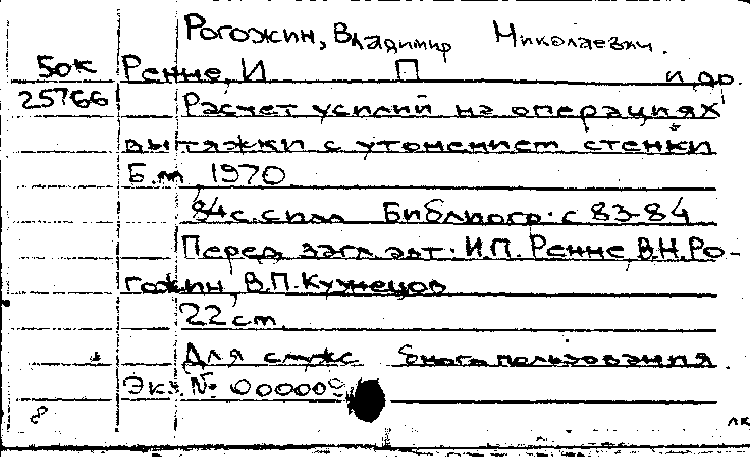 Рогожин, Владимир Николаевич.
50к Ренне, И П и др.
25766 Расчет усилий на операциях
вытяжки с утонением стенки
Б.м 1970
84с. с илл Библиогр. с 83-84
Перед загл авт. И.П. Ренне, В.Н. Ро-
гожин, В.П. Кузнецов
22 см.
Для служебного пользования.
Экз. № 000009
8
лк